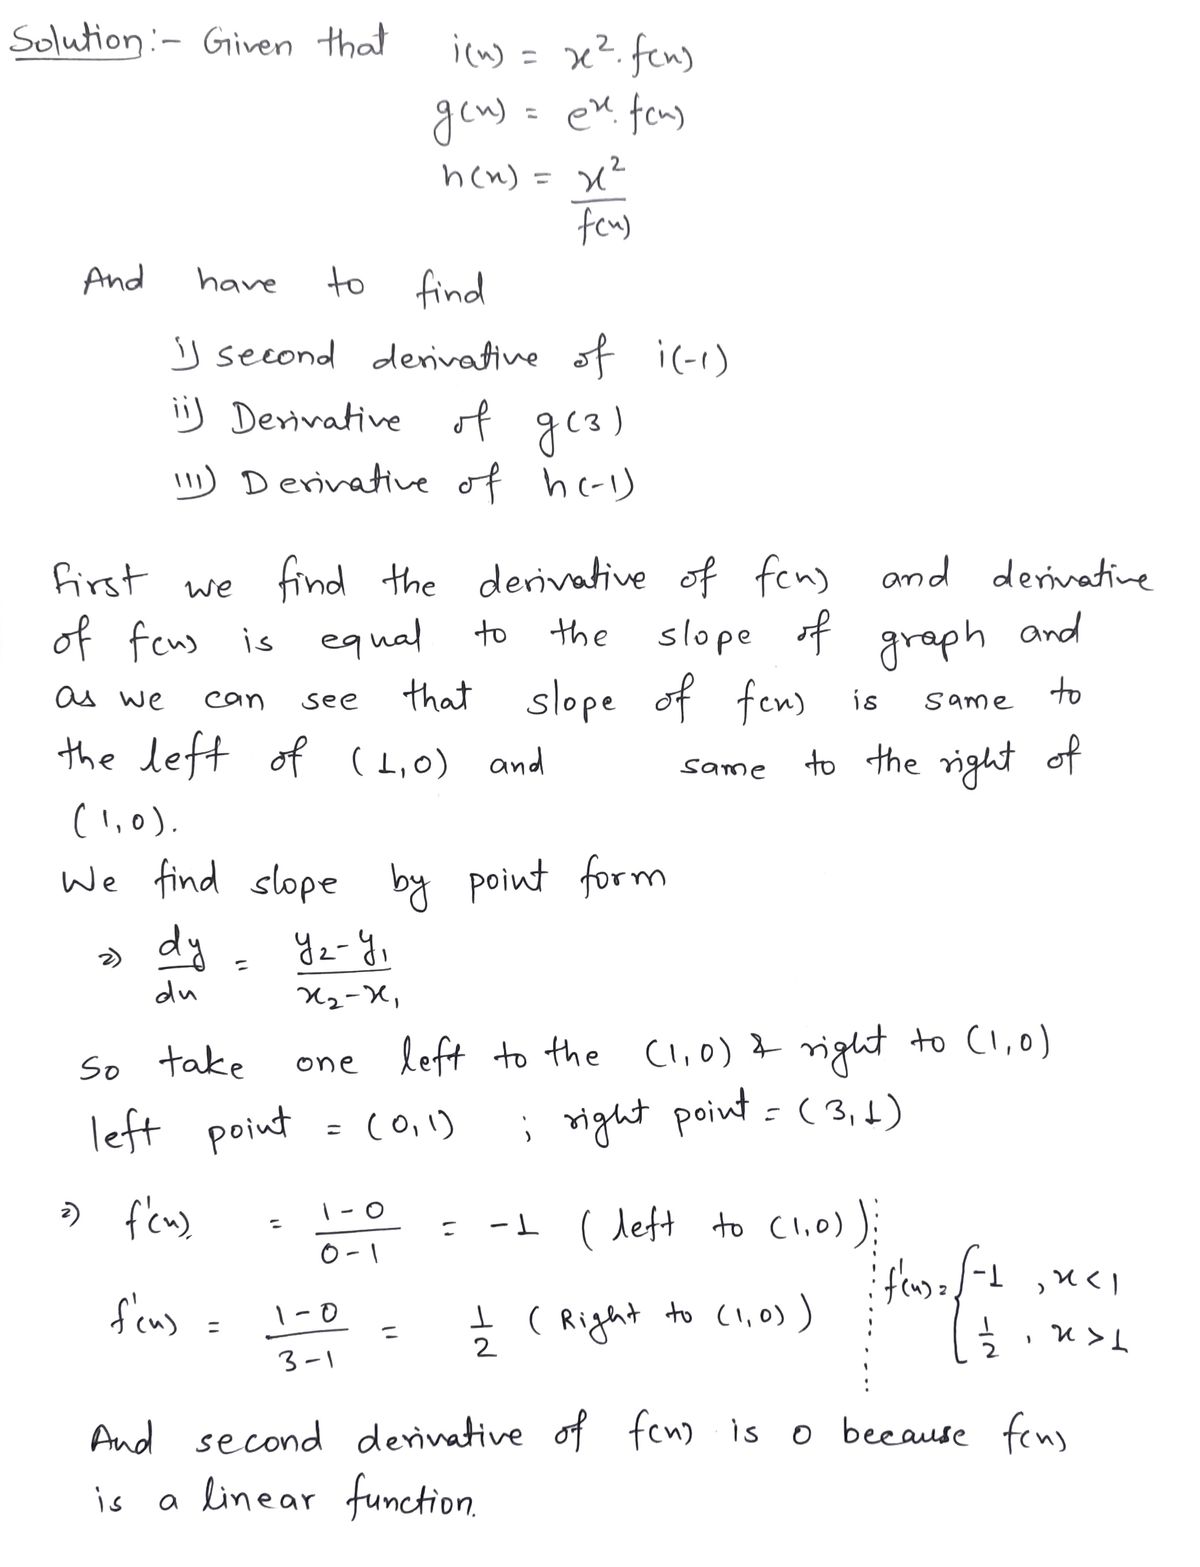 Solution:- Given that i(x) = x². f(x)
g(x) = eˣ. f(x)
h(x) = x²/f(x)
And have to find
i) second derivative of i(-1)
ii) Derivative of g(3)
iii) Derivative of h(-1)
First we find the derivative of f(x) and derivative
of f(x) is equal to the slope of graph and
as we can see that slope of f(x) is same to
the left of (1,0) and same to the right of
(1,0).
We find slope by point form
⇒ dy/dx = (y₂-y₁)/(x₂-x₁)
So take one left to the (1,0) & right to (1,0)
left point = (0,1) ; right point = (3,1)
⇒ f'(x) = (1-0)/(0-1) = -1 (left to (1,0))
f'(x) = (1-0)/(3-1) = 1/2 (Right to (1,0))
f'(x) = { -1 , x<1
1/2 , x>1
And second derivative of f(x) is 0 because f(x)
is a linear function.